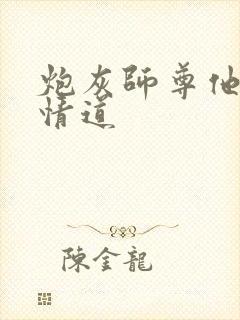 炮灰師尊他
情道
陳金龍